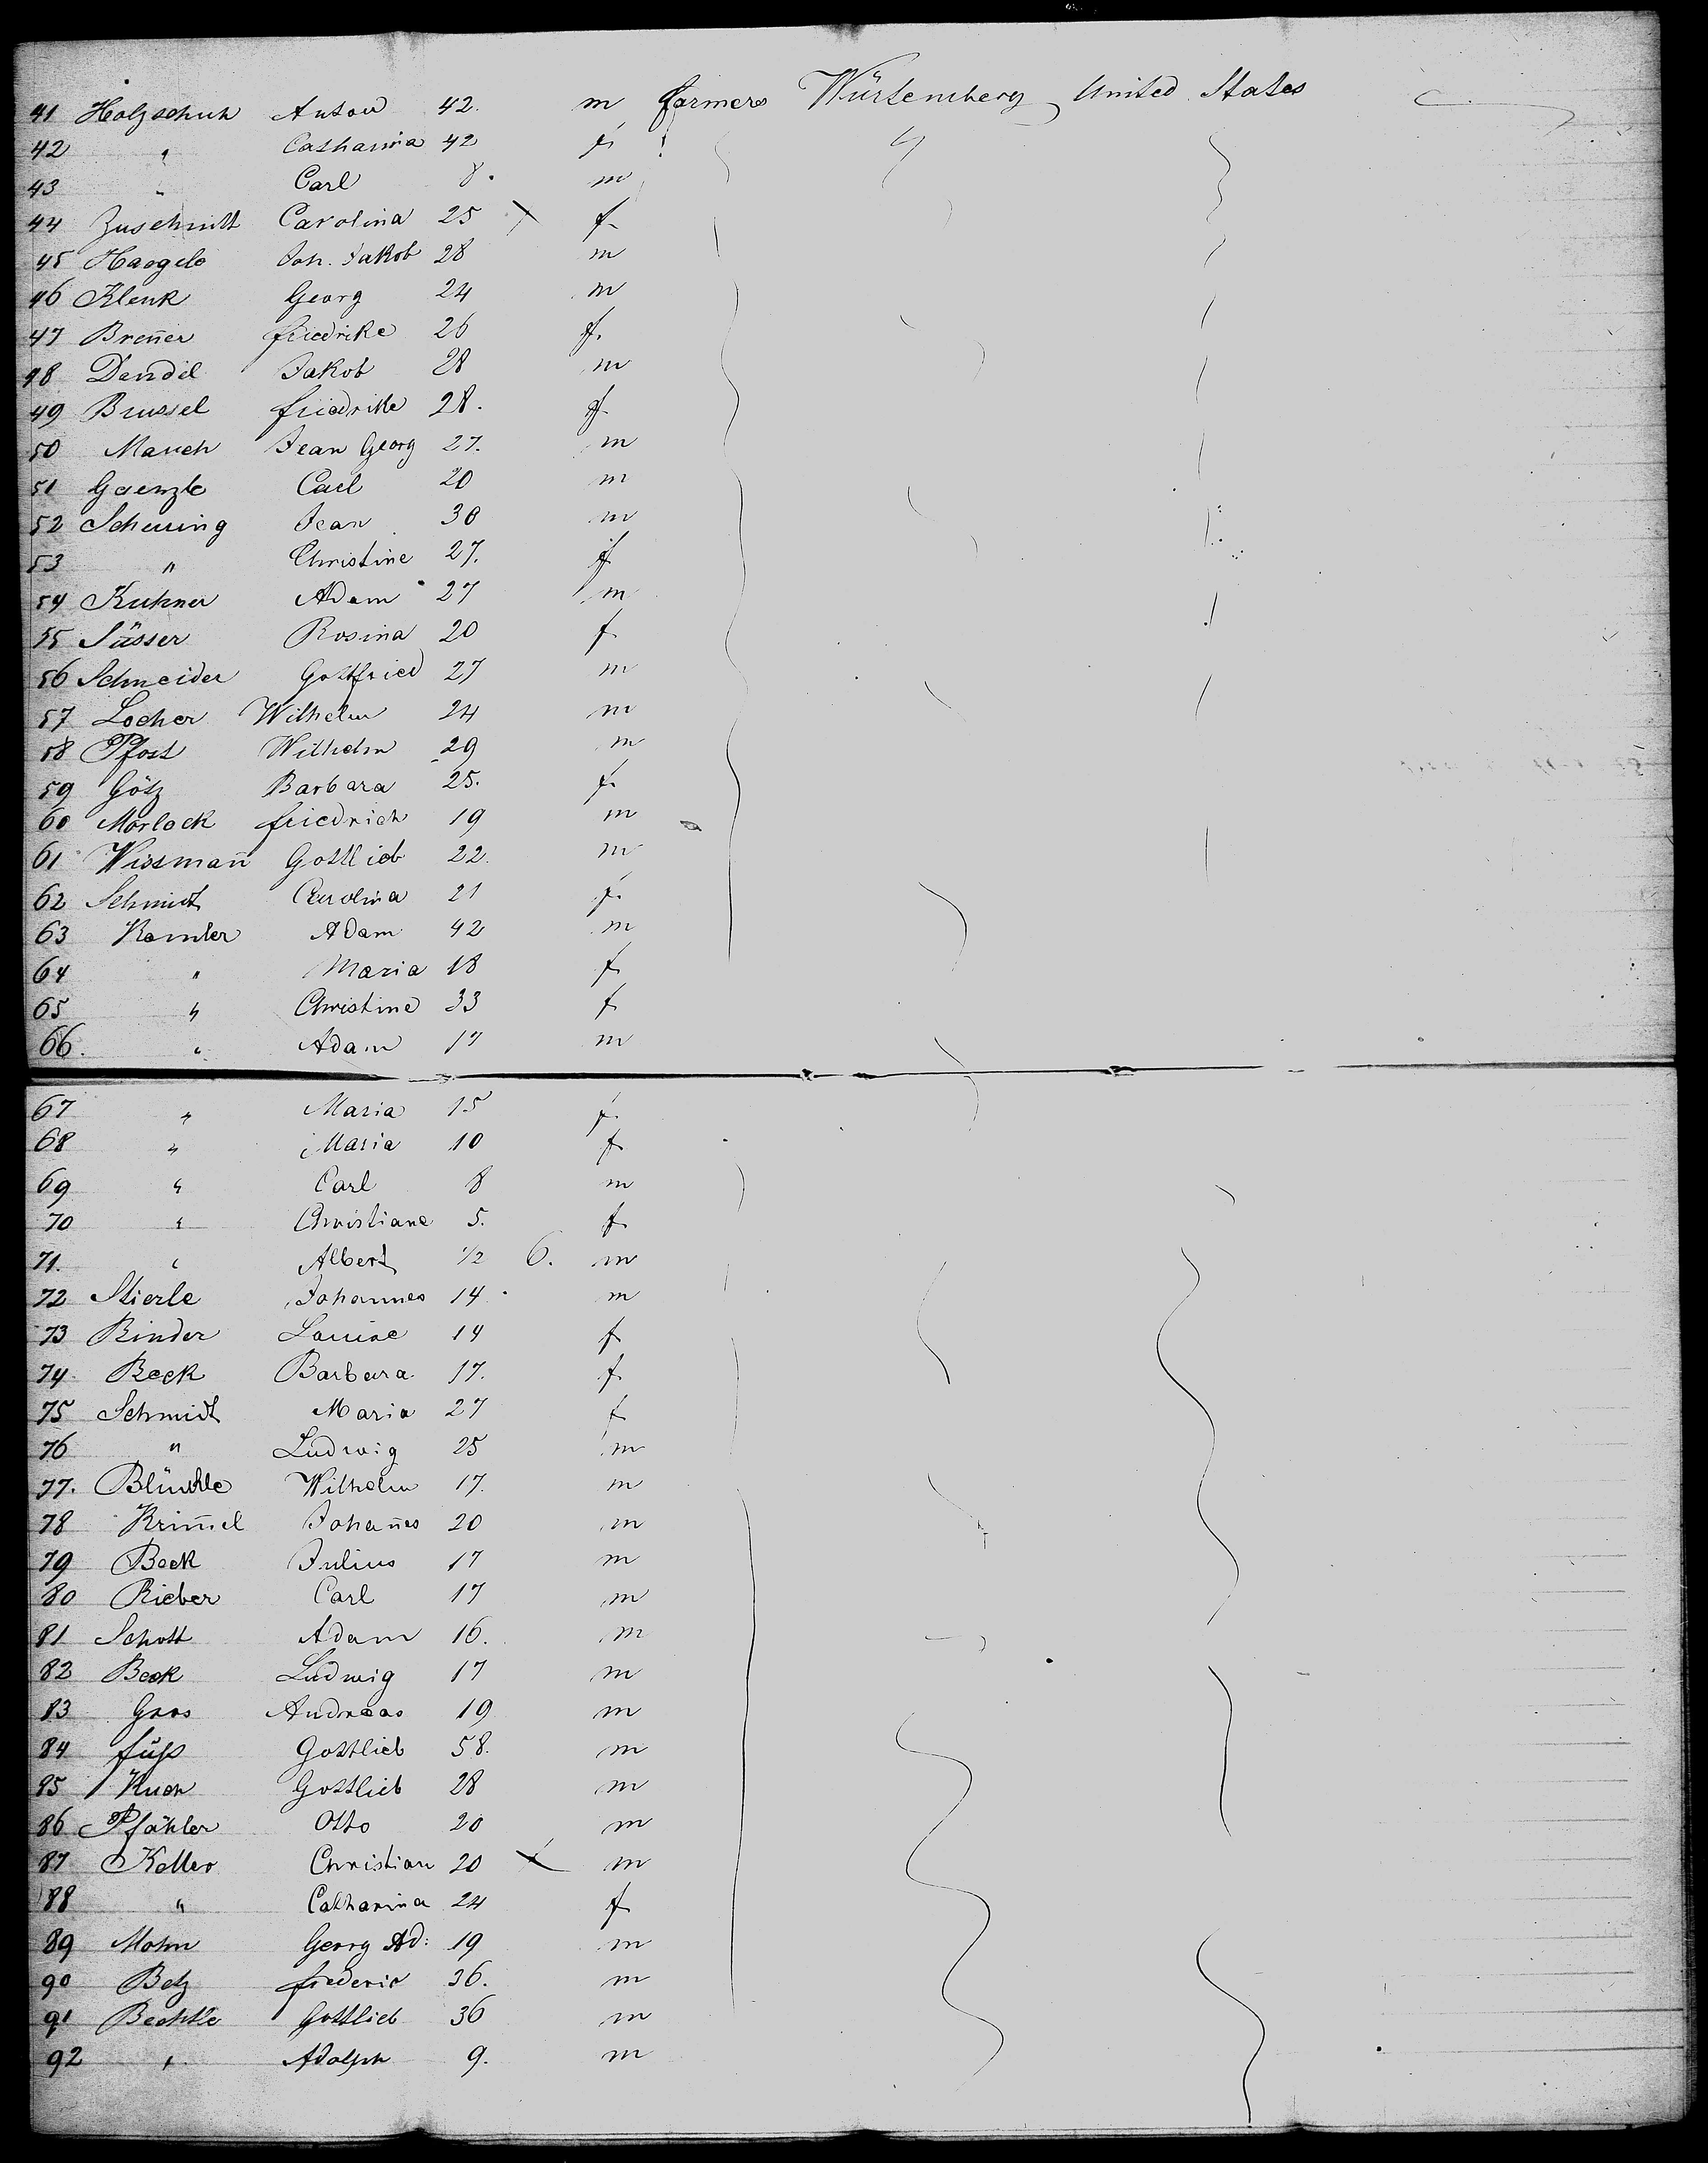 41 Holzschuh Anton 42. m farmers Würtemberg United States
42 " Catharina 42 f "
43 " Carl 8. m
44 Zuschnitt Carolina 25 x f
45 Haegele Joh. Jakob 28 m
46 Klenk Georg 24 m
47 Breñer friedrike 26 f.
48 Dendel Jakob 28 m
49 Brussel friedrike 28. f
50 Mauch Jean Georg 27. m
51 Gaenzle Carl 20 m
52 Scheuing Jean 30 m
53 " Christine 27. f
54 Kuhner Adam 27 m
55 Sässer Rosina 20 f
56 Schneider Gottfried 27 m
57 Locher Wilhelm 24 m
58 Pfost Wilhelm 29 m
59 Götz Barbara 25. f
60 Morlock friedrich 19 m
61 Wissmañ Gottlieb 22. m
62 Schmidt Carolina 21 f
63 Kemler Adam 42 m
64 " Maria 18 f
65 " Christine 33 f
66. " Adam 17 m
67 " Maria 15 f
68 " Maria 10 f
69 " Carl 8 m
70 " Christiane 5. f
71. " Albert 1/2 6. m
72 Stierle Johannes 14 m
73 Binder Louise 14 f
74 Beck Barbara 17. f
75 Schmidt Maria 27 f
76 " Ludwig 25 m
77. Wilhelm 17. m
78 Krim̄el Johañes 20 m
79 Beck Julius 17 m
80 Rieber Carl 17 m
81 Schott Adam 16. m
82 Beck Ludwig 17 m
83 Gros Andreas 19 m
84 füß Gottlieb 58. m
85 Kuon Gottlieb 28 m
86 Pfähler Otto 20 m
87 Keller Christian 20 x m
88 " Catharina 24 f
89 Mohn Georg Ad: 19 m
90 Betz frederic 36. m
91 Bechtle Gottlieb 36 m
92 " Adolph 9. m